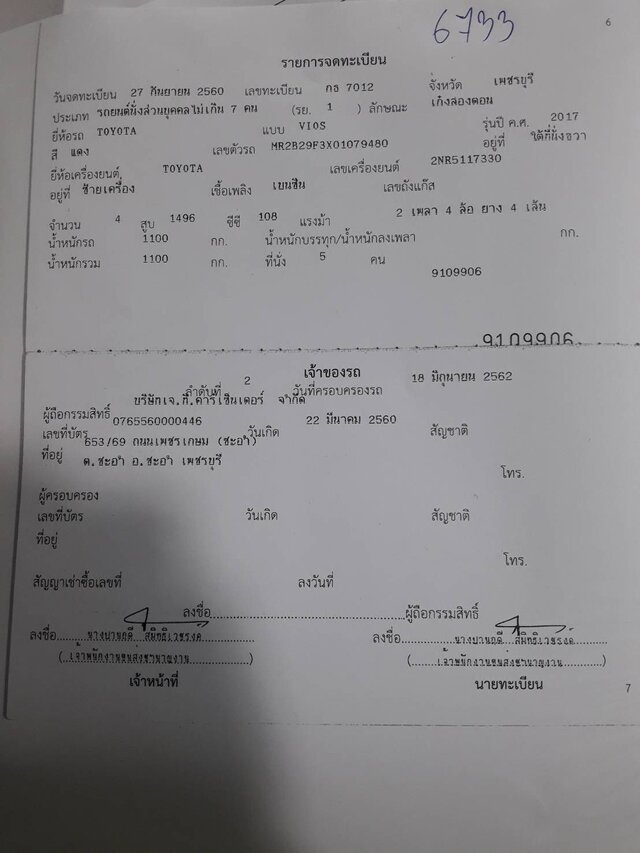 6733
6
รายการจดทะเบียน
วันจดทะเบียน 27 กันยายน 2560 เลขทะเบียน กธ 7012 จังหวัด เพชรบุรี
ประเภท รถยนต์นั่งส่วนบุคคลไม่เกิน 7 คน (รย. 1 ) ลักษณะ เก๋งสองตอน
ยี่ห้อรถ TOYOTA แบบ VIOS รุ่นปี ค.ศ. 2017
สี แดง เลขตัวรถ MR2B29F3X01079480 อยู่ที่ ใต้ที่นั่งขวา
ยี่ห้อเครื่องยนต์ TOYOTA เลขเครื่องยนต์ 2NR5117330
อยู่ที่ ซ้ายเครื่อง เชื้อเพลิง เบนซิน เลขถังแก๊ส
จำนวน 4 สูบ 1496 ซีซี 108 แรงม้า 2 เพลา 4 ล้อ ยาง 4 เส้น
น้ำหนักรถ 1100 กก. น้ำหนักบรรทุก/น้ำหนักลงเพลา กก.
น้ำหนักรวม 1100 กก. ที่นั่ง 5 คน
9109906
9109906
เจ้าของรถ
ลำดับที่ 2 วันที่ครอบครองรถ 18 มิถุนายน 2562
ผู้ถือกรรมสิทธิ์ บริษัทเจ.ที.คาร์เซ็นเตอร์ จำกัด
เลขที่บัตร 0765560000446 วันเกิด 22 มีนาคม 2560 สัญชาติ
ที่อยู่ 653/69 ถนนเพชรเกษม (ชะอำ)
ต.ชะอำ อ.ชะอำ เพชรบุรี
โทร.
ผู้ครอบครอง
เลขที่บัตร วันเกิด สัญชาติ
ที่อยู่
โทร.
สัญญาเช่าซื้อเลขที่ ลงวันที่
ลงชื่อ ผู้ถือกรรมสิทธิ์
ลงชื่อ ลงชื่อ
(เจ้าพนักงานขนส่งชำนาญงาน) (เจ้าพนักงานขนส่งชำนาญงาน)
เจ้าหน้าที่ นายทะเบียน
7